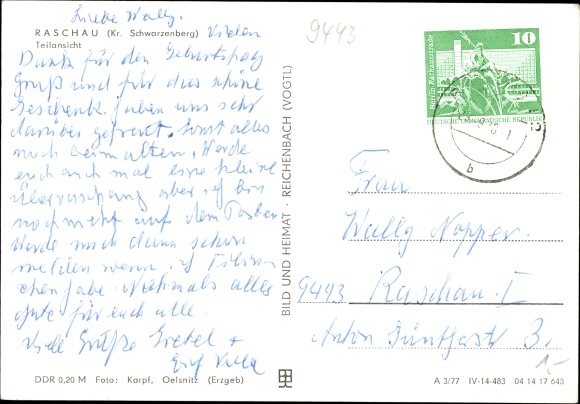 Liebe Wally.
RASCHAU (Kr. Schwarzenberg) Vielen
Teilansicht
Dank für den Geburtstag
gruß und für das schöne
Geschenk. haben uns sehr
darüber gefreut. Sonst alles
noch beim alten. Werde
euch auch mal eine kleine
Überraschung aber ich bin
noch nicht auf dem Posten
Werde mich dann schon
melden wenn ich
habe. Nochmals alles
gute für euch alle.
Viele Grüße Gretel +
DDR 0,20 M Foto: Karpf, Oelsnitz (Erzgeb)
BILD UND HEIMAT · REICHENBACH (VOGTL)
9443
10
Berlin-Rathausstraße
DEUTSCHE DEMOKRATISCHE REPUBLIK
b
Frau
Wally Nopper.
9443 Raschau. I
Anton Günther St 3.
1,-
A 3/77 IV-14-483 04 14 17 643